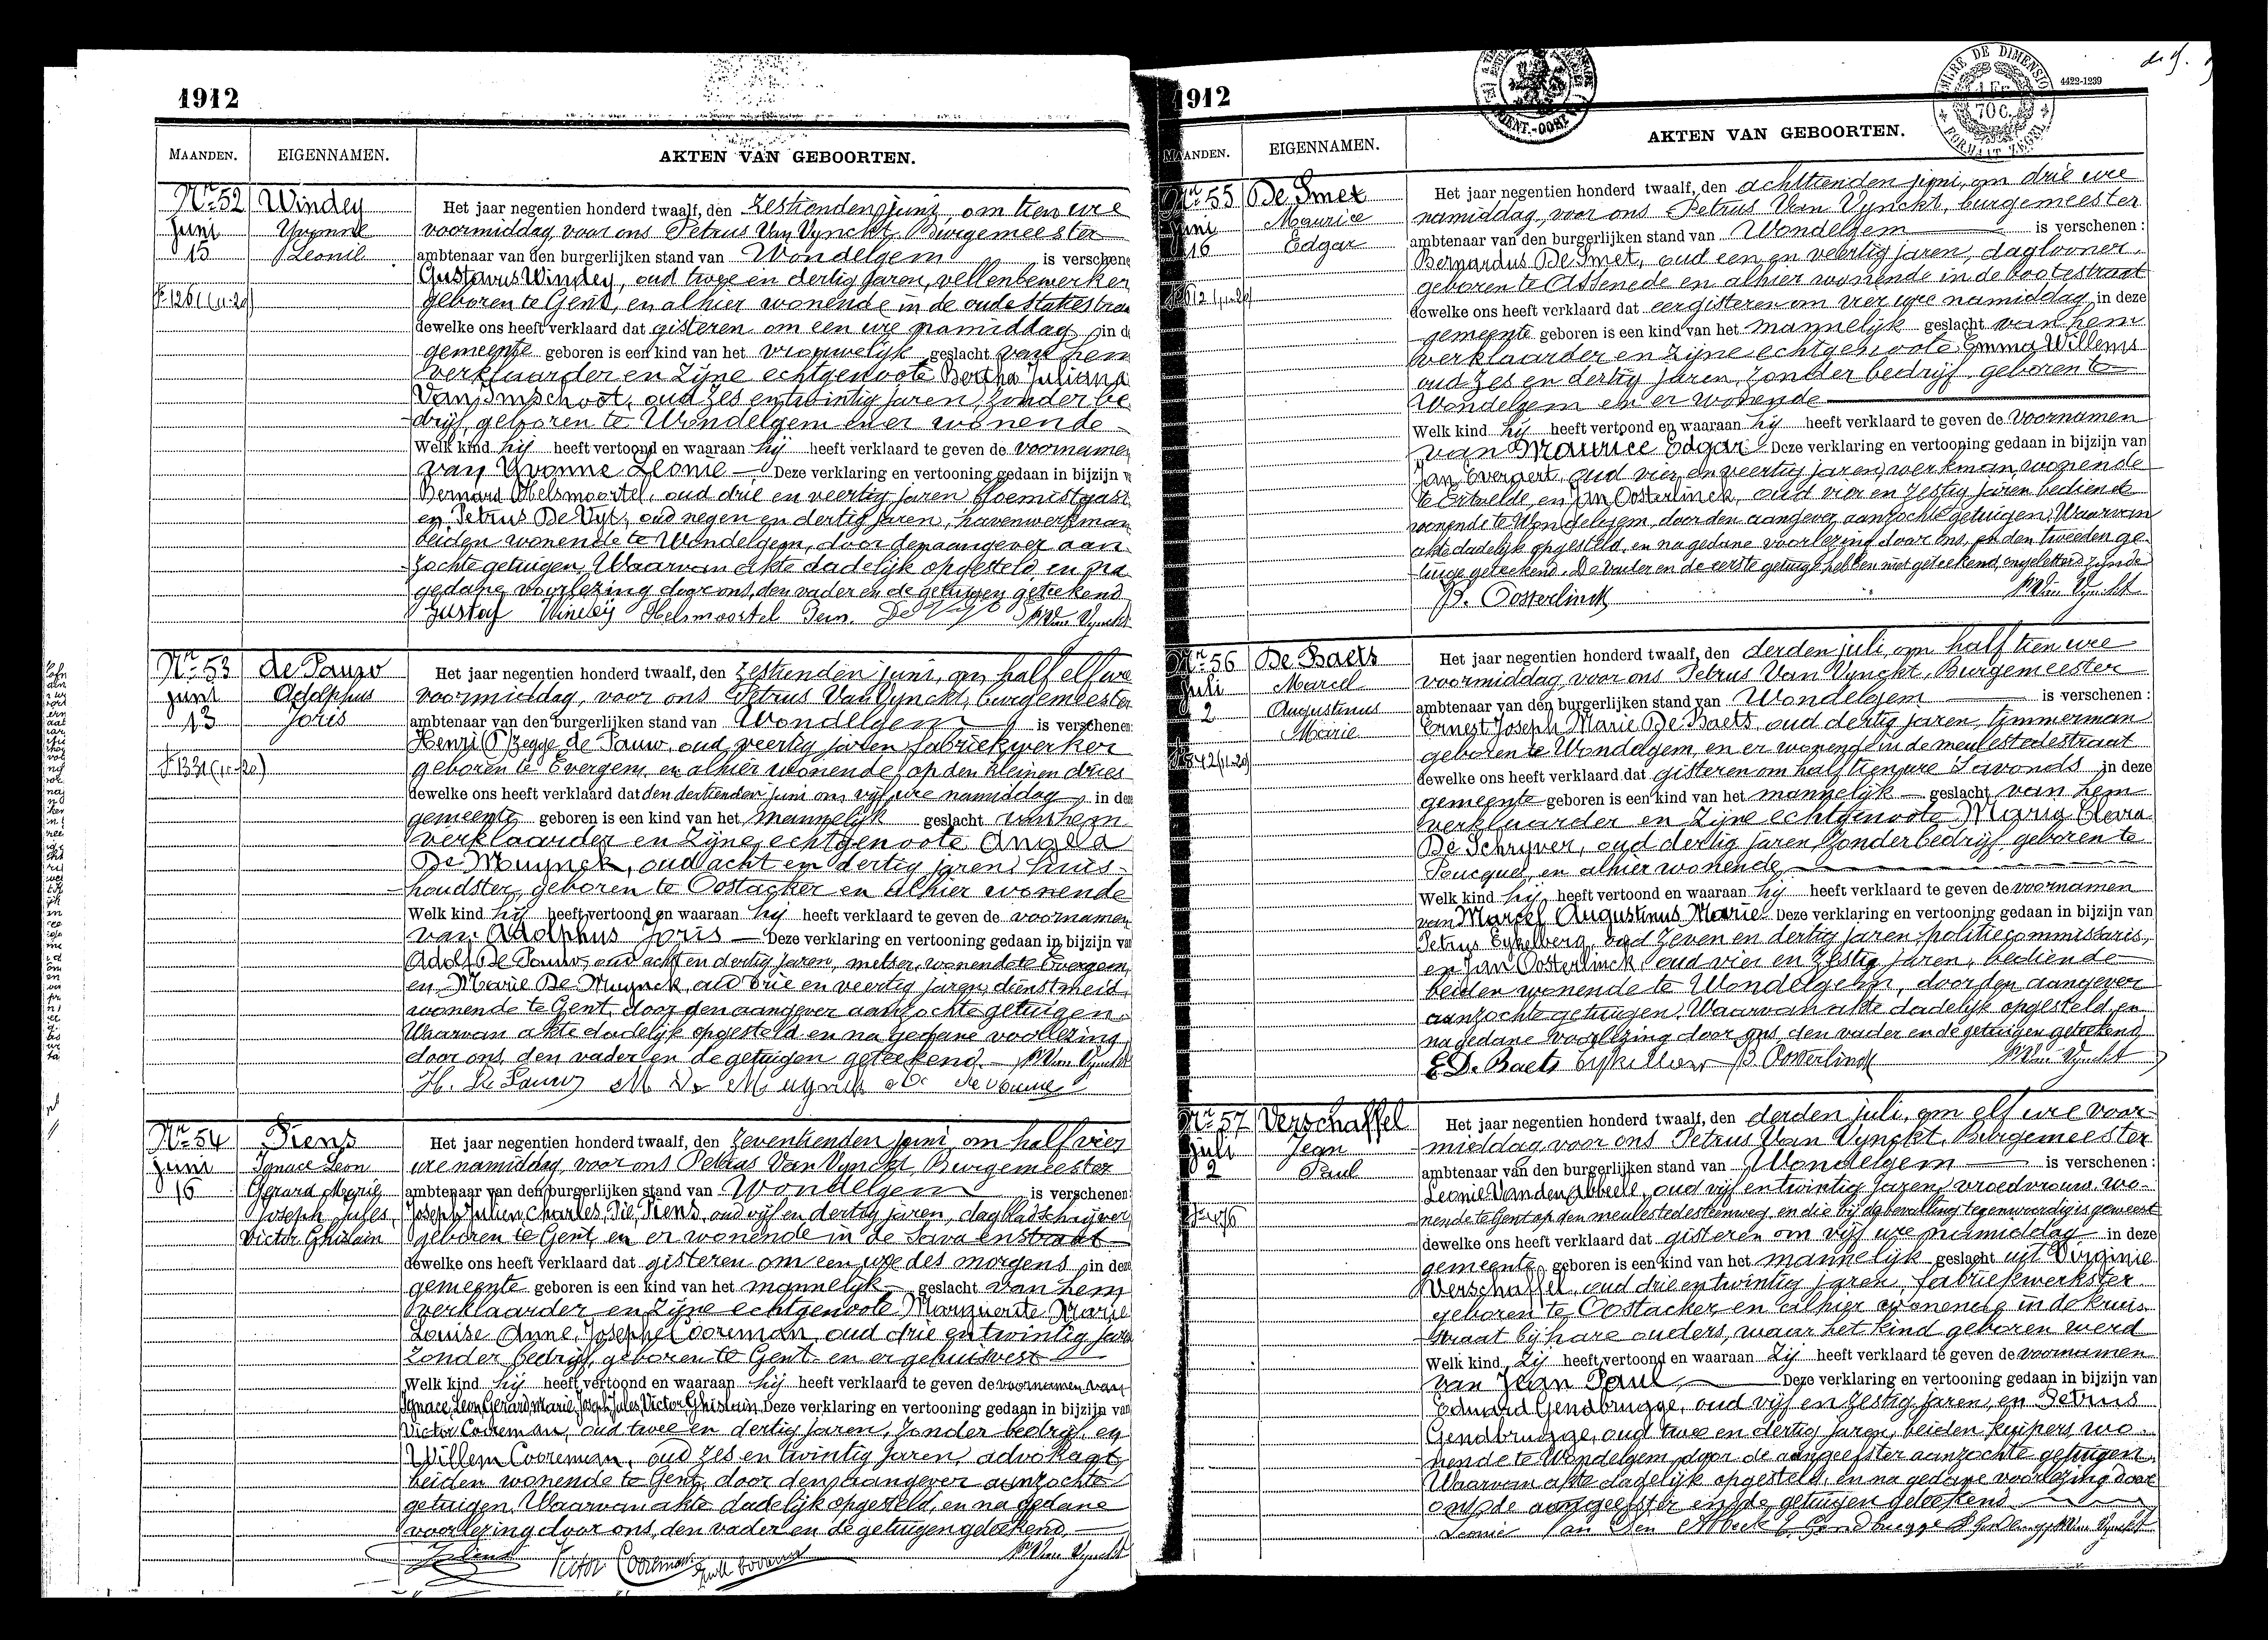 1912
MAANDEN. EIGENNAMEN. AKTEN VAN GEBOORTEN.
Nr 52 Windey
Juni Yvonne
15 Leonie
Het jaar negentien honderd twaalf, den zestienden juni, om tien ure
voormiddag, voor ons Petrus Van Vynckt, Burgemeester
ambtenaar van den burgerlijken stand van Wondelgem is verschene
Gustavus Windey, oud twee en dertig jaren, vellenbewerker
geboren te Gent, en alhier wonende in de oude
dewelke ons heeft verklaard dat gisteren om een ure namiddag in de
gemeente geboren is een kind van het vrouwelijk geslacht van hem
verklaarder en zijne echtgenoote Bertha Juliana
Van Imschoot, oud zes en twintig jaren, zonder be-
drijf, geboren te Wondelgem en er wonende
Welk kind hij heeft vertoond en waaraan hij heeft verklaard te geven de voornamen
van Yvonne Leonie Deze verklaring en vertooning gedaan in bijzijn v
Bernard Helsmoortel, oud drie en veertig jaren, bloemistgast
en Petrus De Vyt, oud negen en dertig jaren, havenwerkman
beiden wonende te Wondelgem, door den aangever aan-
zochte getuigen. Waarvan akte dadelijk opgesteld en na
gedane voorlezing door ons, den vader en de getuigen geteekend
Gustaf Windey Helsmoortel Bern. De Vyt P. Van Vynckt
Nr 53 de Pauw
juni Adolphus
13 Joris
Het jaar negentien honderd twaalf, den zestienden juni, om half elf ure
voormiddag, voor ons Petrus Van Vynckt, burgemeester
ambtenaar van den burgerlijken stand van Wondelgem is verschenen
Henri (P) zegge de Pauw, oud veertig jaren, fabriekwerker
geboren te Evergem, en alhier wonende, op den kleinen dries
dewelke ons heeft verklaard dat den dertienden juni om vijf ure namiddag in deze
gemeente geboren is een kind van het mannelijk geslacht van hem
verklaarder en zijne echtgenoote Angela
De Muynck, oud acht en dertig jaren, huis-
houdster, geboren te Oostacker en alhier wonende
Welk kind hij heeft vertoond en waaraan hij heeft verklaard te geven de voornamen
van Adolphus Joris Deze verklaring en vertooning gedaan in bijzijn van
Adolf De Pauw, oud acht en dertig jaren, metser, wonende te Evergem,
en Marie De Muynck, oud drie en veertig jaren, dienstmeid,
wonende te Gent, door den aangever aanzochte getuigen.
Waarvan akte dadelijk opgesteld en na gedane voorlezing
door ons, den vader en de getuigen geteekend. P. Van Vynckt
H. De Pauw M De Muynck
Nr 54 Piens
juni Ignace Leon
16 Gerard Marie
Joseph Jules
Victor Ghislain
Het jaar negentien honderd twaalf, den zeventienden juni, om half vier
ure namiddag, voor ons Petrus Van Vynckt, Burgemeester
ambtenaar van den burgerlijken stand van Wondelgem is verschenen
Joseph Julien Charles Pie Piens, oud vijf en dertig jaren, dagbladschrijver
geboren te Gent, en er wonende in de Savaenstraat
dewelke ons heeft verklaard dat gisteren om een ure des morgens in deze
gemeente geboren is een kind van het mannelijk geslacht van hem
verklaarder en zijne echtgenoote Marguerite Marie
Louise Anne Josephe Cooreman, oud drie en twintig jare
zonder bedrijf, geboren te Gent en er gehuisvest
Welk kind hij heeft vertoond en waaraan hij heeft verklaard te geven de voornamen van
Ignace Leon Gerard Marie Joseph Jules Victor Ghislain Deze verklaring en vertooning gedaan in bijzijn van
Victor Cooreman, oud twee en dertig jaren, zonder bedrijf, en
Willem Cooreman, oud zes en twintig jaren, advokaat,
beiden wonende te Gent, door den aangever aanzochte
getuigen. Waarvan akte dadelijk opgesteld, en na gedane
voorlezing door ons, den vader en de getuigen geteekend.
Victor Cooreman P. Van Vynckt
1912
4422-1239
MAANDEN. EIGENNAMEN. AKTEN VAN GEBOORTEN.
Nr 55 De Smet
Juni Maurice
16 Edgar
Het jaar negentien honderd twaalf, den achttienden juni, om drie ure
namiddag, voor ons Petrus Van Vynckt, burgemeester
ambtenaar van den burgerlijken stand van Wondelgem is verschenen :
Bernardus De Smet, oud een en veertig jaren, daglooner,
geboren te Assenede en alhier wonende in de
dewelke ons heeft verklaard dat eergisteren om vier ure namiddag in deze
gemeente geboren is een kind van het mannelijk geslacht van hem
verklaarder en zijne echtgenoote Emma Willems
oud zes en dertig jaren, zonder bedrijf, geboren te
Wondelgem en er wonende
Welk kind hij heeft vertoond en waaraan hij heeft verklaard te geven de voornamen
van Maurice Edgar Deze verklaring en vertooning gedaan in bijzijn van
Jan Everaert, oud vier en veertig jaren, werkman, wonende
te Ertvelde, en Jan Oosterlinck, oud vier en zestig jaren bediende
wonende te Wondelgem, door den aangever aanzochte getuigen. Waarvan
akte dadelijk opgesteld, en na gedane voorlezing door ons, en den tweeden ge-
tuige geteekend. De vader en de eerste getuige hebben niet geteekend, ongeletterd zijnde
J. Oosterlinck P. Van Vynckt
Nr 56 De Baets
Juli Marcel
2 Augustinus
Marie
Het jaar negentien honderd twaalf, den derden juli, om half tien ure
voormiddag, voor ons Petrus Van Vynckt, Burgemeester
ambtenaar van den burgerlijken stand van Wondelgem is verschenen :
Ernest Joseph Marie De Baets, oud dertig jaren, timmerman
geboren te Wondelgem, en er wonende in de meulestedestraat
dewelke ons heeft verklaard dat gisteren om half tien ure 's avonds in deze
gemeente geboren is een kind van het mannelijk geslacht van hem
verklaarder en zijne echtgenoote Maria Clara
De Schryver, oud dertig jaren, zonder bedrijf, geboren te
Poucques, en alhier wonende
Welk kind hij heeft vertoond en waaraan hij heeft verklaard te geven de voornamen
van Marcel Augustinus Marie Deze verklaring en vertooning gedaan in bijzijn van
Petrus Eykelberg, oud zeven en dertig jaren, politiecommissaris,
en Jan Oosterlinck, oud vier en zestig jaren, bediende
beiden wonende te Wondelgem, door den aangever
aanzochte getuigen. Waarvan akte dadelijk opgesteld, en
na gedane voorlezing door ons, den vader en de getuigen geteekend
E. De Baets J. Oosterlinck P. Van Vynckt
Nr 57 Verschaffel
Juli Jean
2 Paul
Het jaar negentien honderd twaalf, den derden juli, om elf ure voor-
middag voor ons Petrus Van Vynckt, Burgemeester
ambtenaar van den burgerlijken stand van Wondelgem is verschenen :
Leonie Vanden Abbeele, oud vijf en twintig jaren, vroedvrouw, wo-
nende te Gent op den meulestedesteenweg, en die bij de bevalling tegenwoordig is geweest
dewelke ons heeft verklaard dat gisteren om vijf ure namiddag in deze
gemeente geboren is een kind van het mannelijk geslacht uit Virginie
Verschaffel, oud drie en twintig jaren, fabriekwerkster
geboren te Oostacker en alhier wonende in de kruis-
straat bij hare ouders, waar het kind geboren werd
Welk kind zij heeft vertoond en waaraan zij heeft verklaard te geven de voornamen
van Jean Paul Deze verklaring en vertooning gedaan in bijzijn van
Eduard Gendbrugge, oud vijf en zestig jaren, en Petrus
Gendbrugge, oud twee en dertig jaren, beiden kuipers, wo-
nende te Wondelgem, door de aangeefster aanzochte getuigen.
Waarvan akte dadelijk opgesteld, en na gedane voorlezing door
ons, de aangeefster en de getuigen geteekend
Leonie Van Den Abbeele E. Gendbrugge P. Van Vynckt